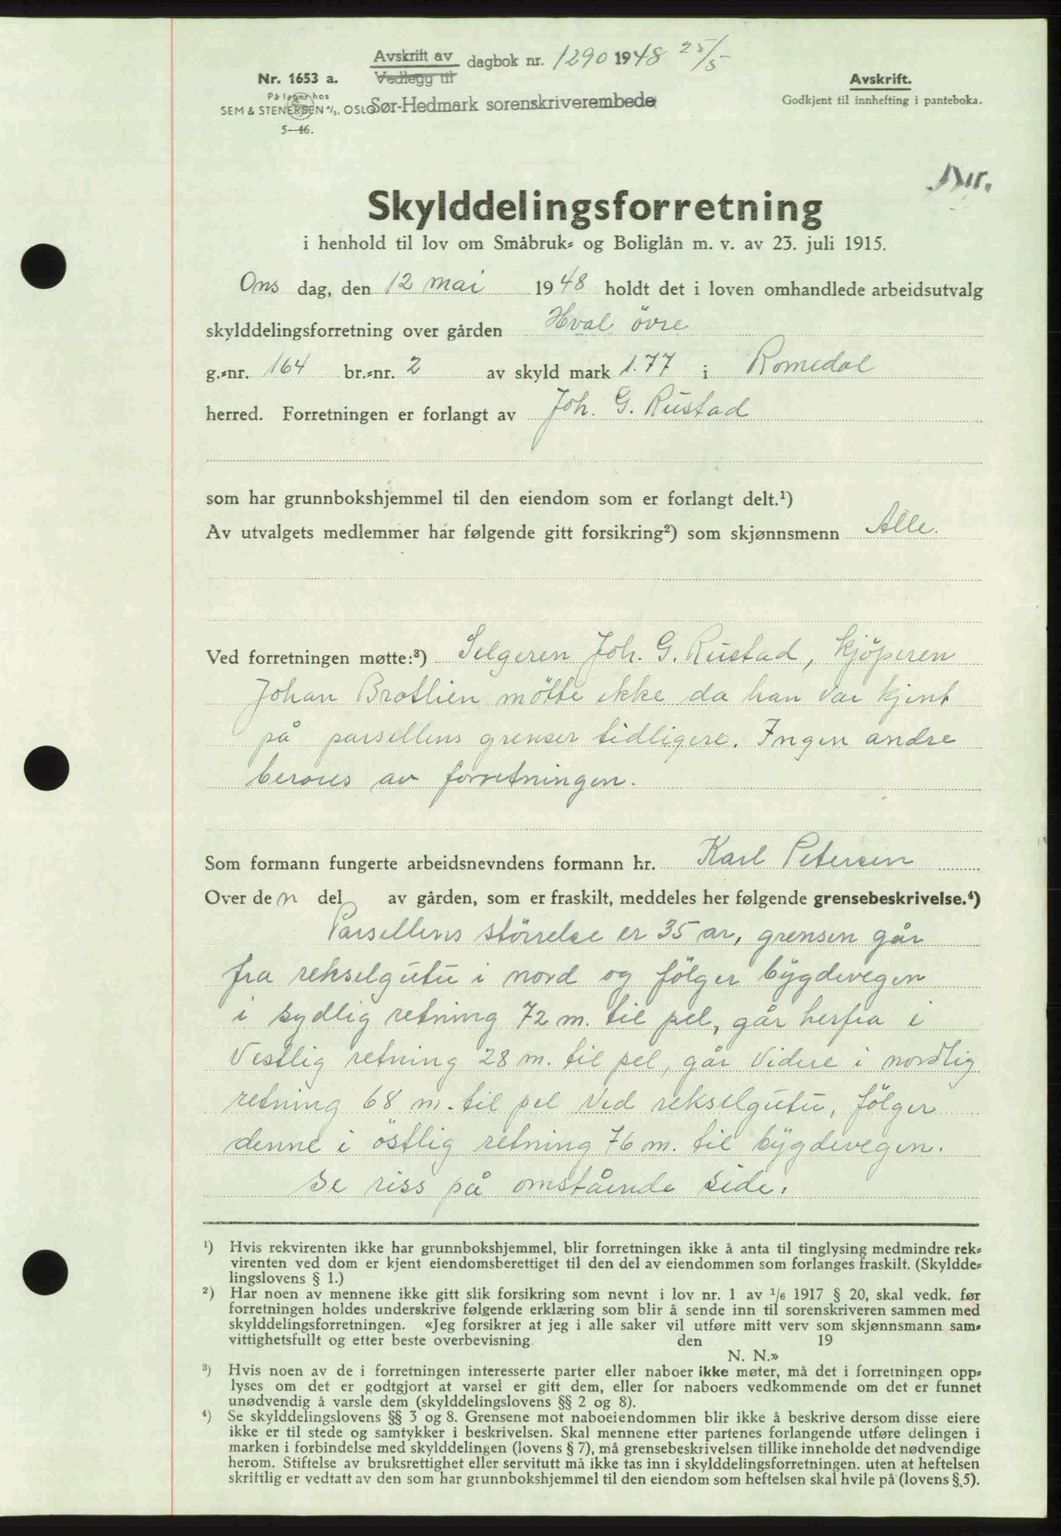 Avskrift av
Vedlegg til
dagbok nr. 1290 1948 25/5
Sør-Hedmark sorenskriverembede
Nr. 1653 a.
På lager hos
SEM & STENERSEN A/S, OSLO
5—46.
Avskrift.
Godkjent til innhefting i panteboka.
Skylddelingsforretning
i henhold til lov om Småbruk- og Boliglån m. v. av 23. juli 1915.
Ons dag, den 12 mai 1948 holdt det i loven omhandlede arbeidsutvalg
skylddelingsforretning over gården Hval övre
g.-nr. 164 br.-nr. 2 av skyld mark 1.77 i Romedal
herred. Forretningen er forlangt av Joh. G. Rustad
som har grunnbokshjemmel til den eiendom som er forlangt delt.¹)
Av utvalgets medlemmer har følgende gitt forsikring²) som skjønnsmenn Alle.
Ved forretningen møtte:³) Selgeren Joh. G. Rustad, kjöperen
Johan Brotlien mötte ikke da han var kjent
på parsellens grenser tidligere. Ingen andre
beröres av forretningen.
Som formann fungerte arbeidsnevndens formann hr. Karl Petersen
Over den del av gården, som er fraskilt, meddeles her følgende grensebeskrivelse.⁴)
Parsellens störrelse er 35 ar, grensen går
fra rekselgutu i nord og fölger bygdevegen
i sydlig retning 72 m. til pel, går herfra i
vestlig retning 28 m. til pel, går videre i nordlig
retning 68 m. til pel ved rekselgutu, fölger
denne i östlig retning 76 m. til bygdevegen.
Se riss på omstående side.
¹) Hvis rekvirenten ikke har grunnbokshjemmel, blir forretningen ikke å anta til tinglysing medmindre rek-
virenten ved dom er kjent eiendomsberettiget til den del av eiendommen som forlanges fraskilt. (Skyldde-
lingslovens § 1.)
²) Har noen av mennene ikke gitt slik forsikring som nevnt i lov nr. 1 av 1/6 1917 § 20, skal vedk. før
forretningen holdes underskrive følgende erklæring som blir å sende inn til sorenskriveren sammen med
skylddelingsforretningen. «Jeg forsikrer at jeg i alle saker vil utføre mitt verv som skjønnsmann sam-
vittighetsfullt og etter beste overbevisning den 19
N. N.»
³) Hvis noen av de i forretningen interesserte parter eller naboer ikke møter, må det i forretningen opp-
lyses om det er godtgjort at varsel er gitt dem, eller for naboers vedkommende om det er funnet
unødvendig å varsle dem (skylddelingslovens §§ 2 og 8).
⁴) Se skylddelingslovens §§ 3 og 8. Grensene mot naboeiendommen blir ikke å beskrive dersom disse eiere
ikke er til stede og samtykker i beskrivelsen. Skal mennene etter partenes forlangende utføre delingen i
marken i forbindelse med skylddelingen (lovens § 7), må grensebeskrivelsen tillike inneholde det nødvendige
herom. Stiftelse av bruksrettighet eller servitutt må ikke tas inn i skylddelingsforretningen. uten at heftelsen
skriftlig er vedtatt av den som har grunnbokshjemmel til den eiendom som heftelsen skal hvile på (lovens § 5).